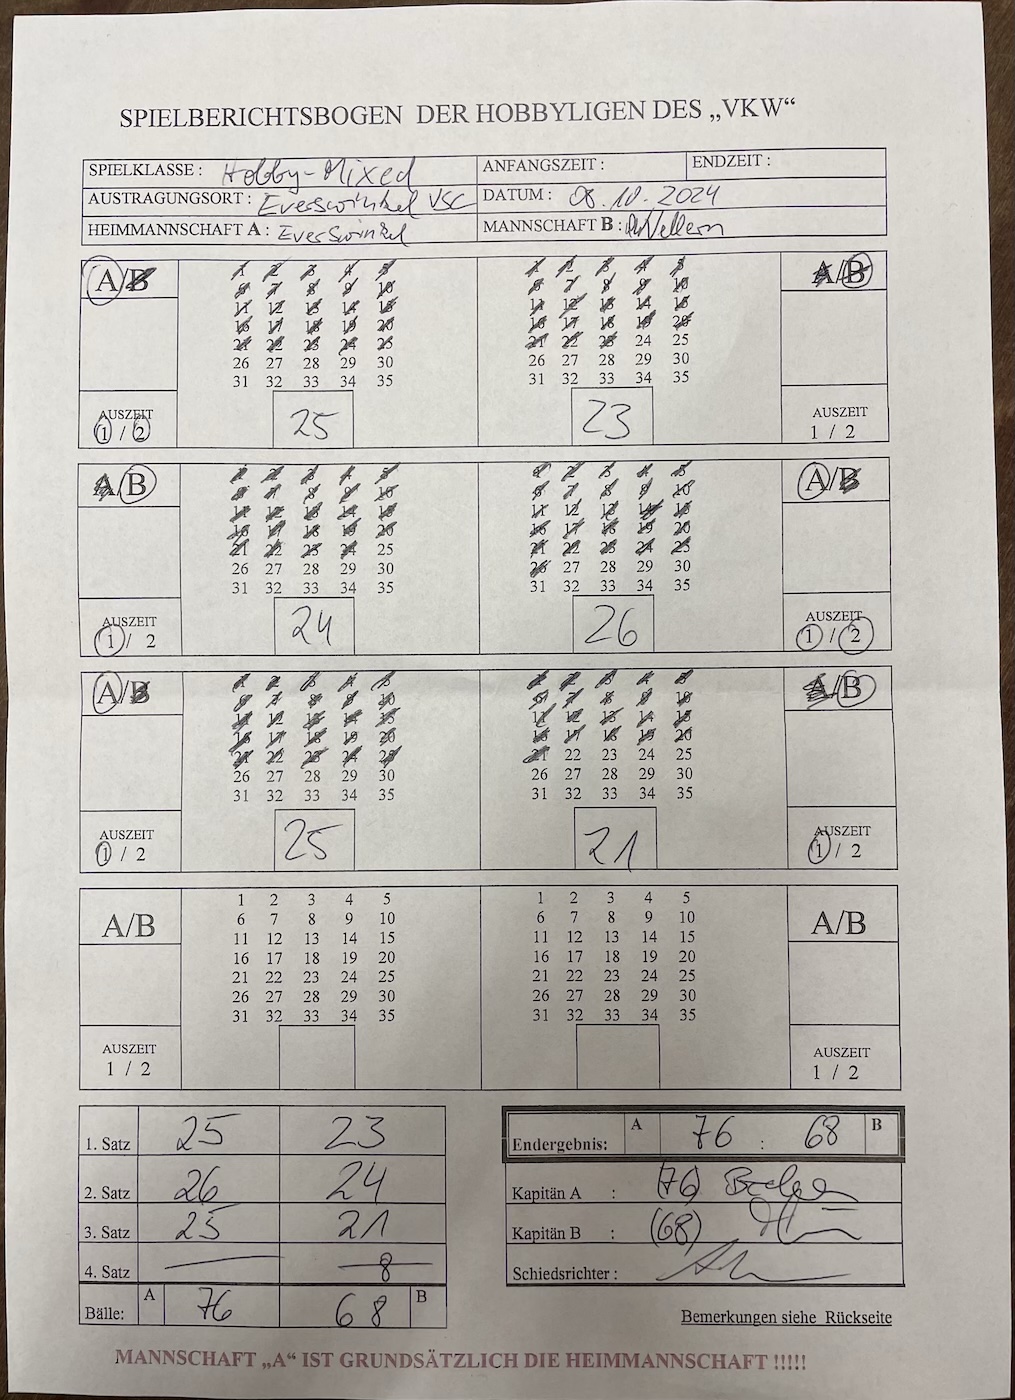 SPIELBERICHTSBOGEN DER HOBBYLIGEN DES „VKW“
SPIELKLASSE : Hobby-Mixed ANFANGSZEIT : ENDZEIT :
AUSTRAGUNGSORT : Everswinkel VSC DATUM : 08.10.2024
HEIMMANNSCHAFT A : Everswinkel MANNSCHAFT B : Vellern
A/B 1 2 3 4 5 1 2 3 4 5 A/B
6 7 8 9 10 6 7 8 9 10
11 12 13 14 15 11 12 13 14 15
16 17 18 19 20 16 17 18 19 20
21 22 23 24 25 21 22 23 24 25
26 27 28 29 30 26 27 28 29 30
31 32 33 34 35 31 32 33 34 35
AUSZEIT 25 23 AUSZEIT
1 / 2 1 / 2
A/B 1 2 3 4 5 1 2 3 4 5 A/B
6 7 8 9 10 6 7 8 9 10
11 12 13 14 15 11 12 13 14 15
16 17 18 19 20 16 17 18 19 20
21 22 23 24 25 21 22 23 24 25
26 27 28 29 30 26 27 28 29 30
31 32 33 34 35 31 32 33 34 35
AUSZEIT 24 26 AUSZEIT
1 / 2 1 / 2
A/B 1 2 3 4 5 1 2 3 4 5 A/B
6 7 8 9 10 6 7 8 9 10
11 12 13 14 15 11 12 13 14 15
16 17 18 19 20 16 17 18 19 20
21 22 23 24 25 21 22 23 24 25
26 27 28 29 30 26 27 28 29 30
31 32 33 34 35 31 32 33 34 35
AUSZEIT 25 21 AUSZEIT
1 / 2 1 / 2
A/B 1 2 3 4 5 1 2 3 4 5 A/B
6 7 8 9 10 6 7 8 9 10
11 12 13 14 15 11 12 13 14 15
16 17 18 19 20 16 17 18 19 20
21 22 23 24 25 21 22 23 24 25
26 27 28 29 30 26 27 28 29 30
31 32 33 34 35 31 32 33 34 35
AUSZEIT AUSZEIT
1 / 2 1 / 2
1. Satz 25 23
2. Satz 26 24
3. Satz 25 21
4. Satz — 8
Bälle: A 76 68 B
Endergebnis: A 76 : 68 B
Kapitän A : (76)
Kapitän B : (68)
Schiedsrichter :
Bemerkungen siehe Rückseite
MANNSCHAFT „A“ IST GRUNDSÄTZLICH DIE HEIMMANNSCHAFT !!!!!